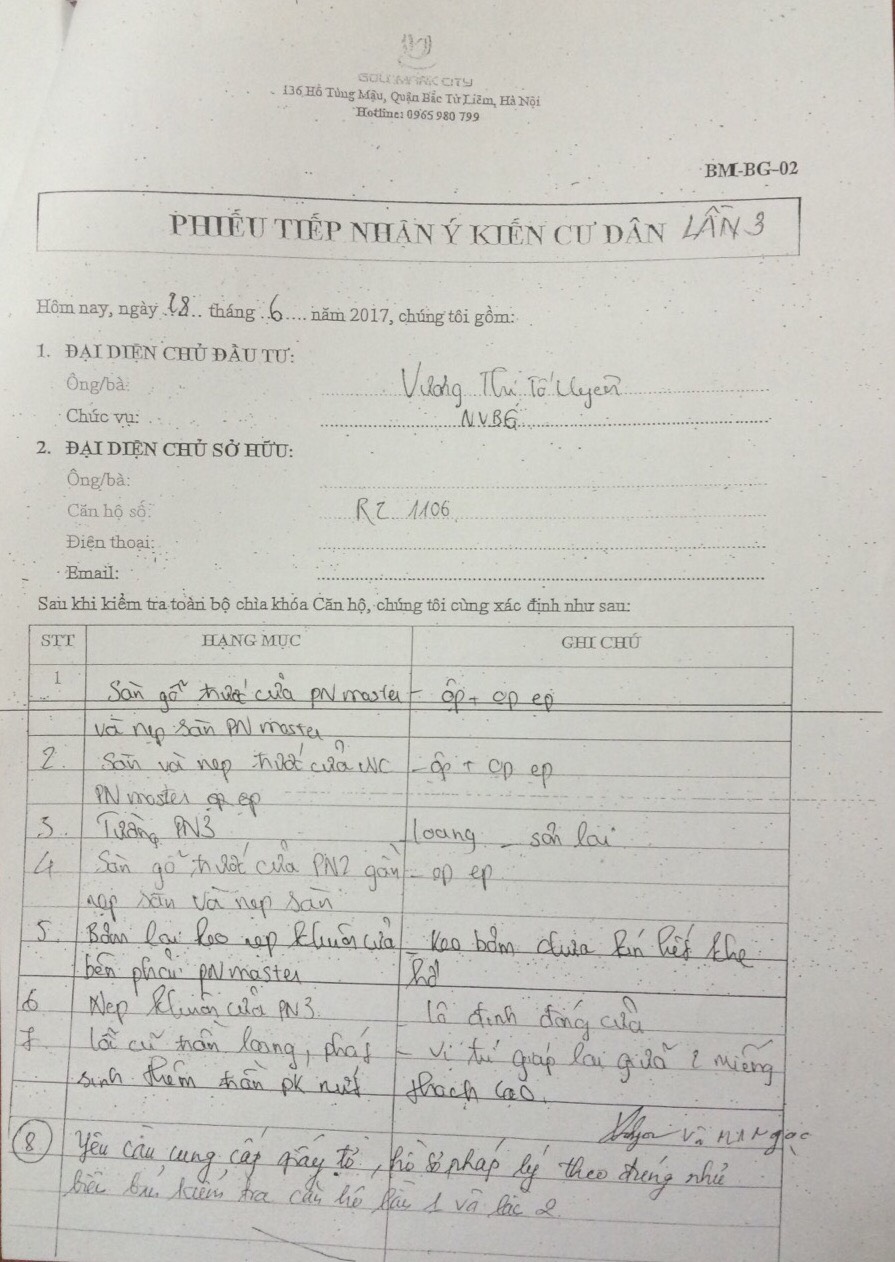 GOLDMARK CITY
136 Hồ Tùng Mậu, Quận Bắc Từ Liêm, Hà Nội
Hotline: 0965 980 799
BM-BG-02
PHIẾU TIẾP NHẬN Ý KIẾN CƯ DÂN LẦN 3
Hôm nay, ngày 28 tháng 6 năm 2017, chúng tôi gồm:
1. ĐẠI DIỆN CHỦ ĐẦU TƯ:
Ông/bà: Vương Thị Tố Uyên
Chức vụ: NVBG
2. ĐẠI DIỆN CHỦ SỞ HỮU:
Ông/bà:
Căn hộ số: R2 1106
Điện thoại:
Email:
Sau khi kiểm tra toàn bộ chìa khóa Căn hộ, chúng tôi cùng xác định như sau:
STT HẠNG MỤC GHI CHÚ
1 Sàn gỗ trước cửa PN master - ộp + ọp ẹp
và nẹp sàn PN master
2. Sàn và nẹp trước cửa WC - ộp + ọp ẹp
PN master ọp ẹp
3. Tường PN3 loang - sơn lại
4 Sàn gỗ trước cửa PN2 gần - ọp ẹp
nẹp sàn và nẹp sàn
5. Bơm lại keo nẹp khuôn cửa - keo bơm chưa kín hết khe
bên phải PN master hở
6 Nẹp khuôn cửa PN3. - lỗ đinh đóng cửa
7 lỗi cũ trần loang, phát - vị trí giáp lai giữa 2 miếng
sinh thêm trần PK nứt thạch cao.
8 Yêu cầu cung cấp giấy tờ, hồ sơ pháp lý theo đúng như
biên bản kiểm tra căn hộ lần 1 và lần 2